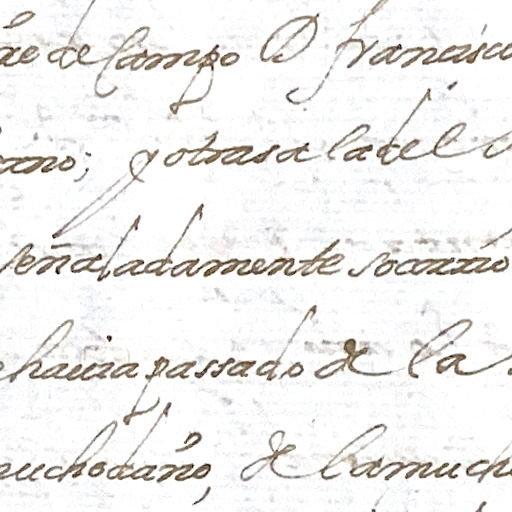 de Campo D francisco
ano; y otras a la del
señaladamente socorrio
hauia passado de la
muchodaño, de lamucha